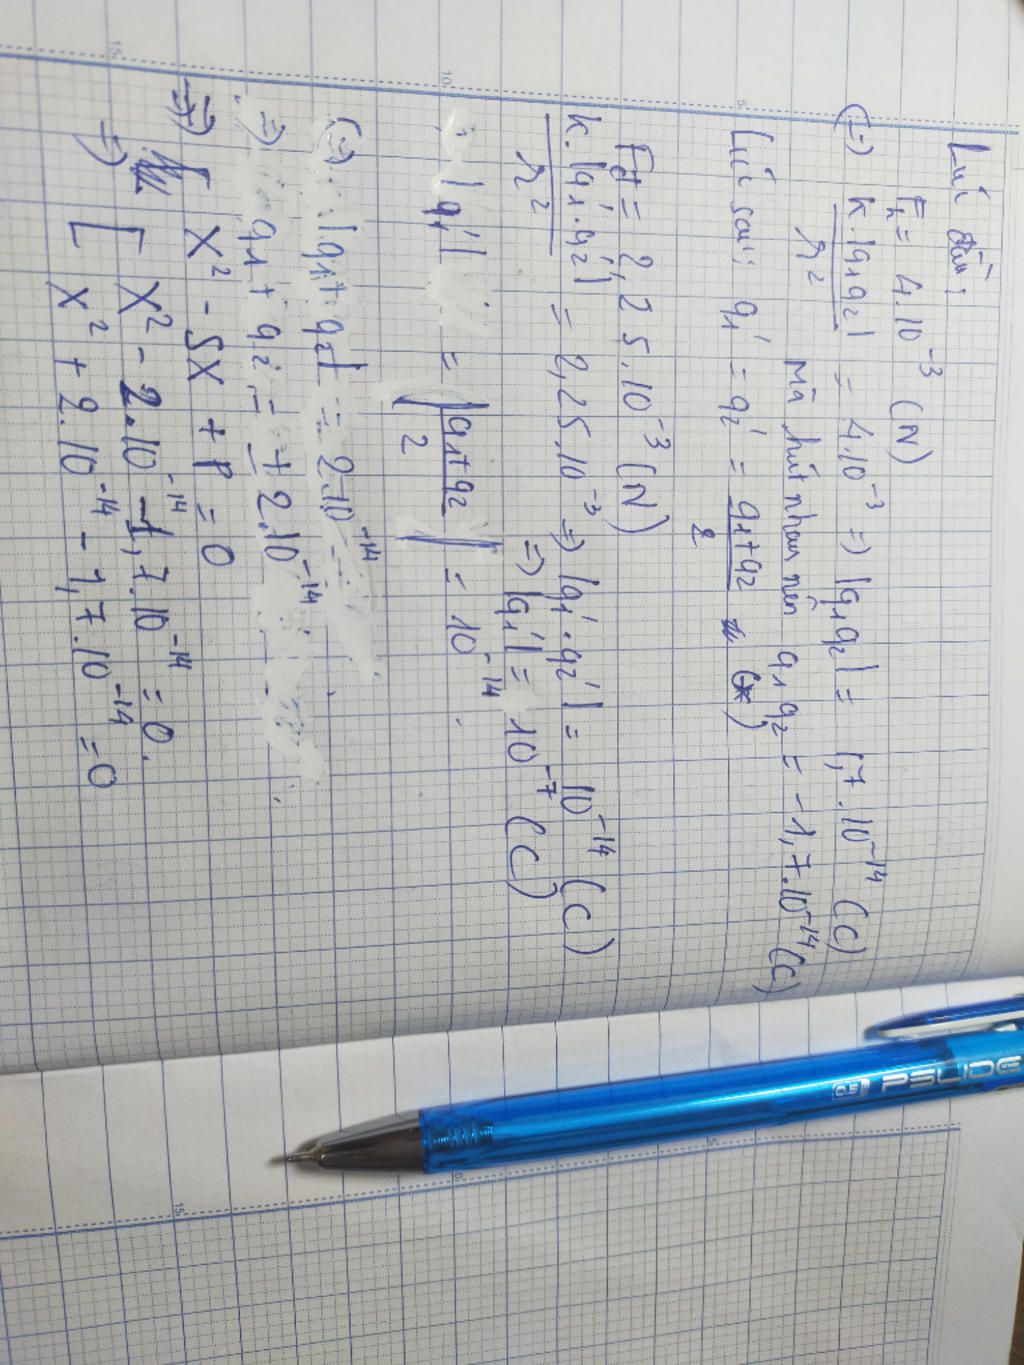 Lúc đầu:
Fh = 4.10⁻³ (N)
(=) k.|q₁q₂| / r² = 4.10⁻³ => |q₁q₂| = 1,7.10⁻¹⁴ (C)
mà hút nhau nên q₁q₂ = -1,7.10⁻¹⁴ (C)
Lúc sau: q₁' = q₂' = q₁+q₂ / 2 (*)
Fđ = 2,25.10⁻³ (N)
k.|q₁'.q₂'| / r² = 2,25.10⁻³ => |q₁'.q₂'| = 10⁻¹⁴ (C)
=> |q₁'| = 10⁻⁷ (C)
|q₁'| = |q₁+q₂ / 2| = 10⁻¹⁴
(=) |q₁+q₂| = 2.10⁻¹⁴
=> q₁ + q₂ = ± 2.10⁻¹⁴
=> X² - SX + P = 0
=> [ X² - 2.10⁻¹⁴ - 1,7.10⁻¹⁴ = 0.
X² + 2.10⁻¹⁴ - 1,7.10⁻¹⁴ = 0
5
10
15
0.5 PSLIDE
5
15